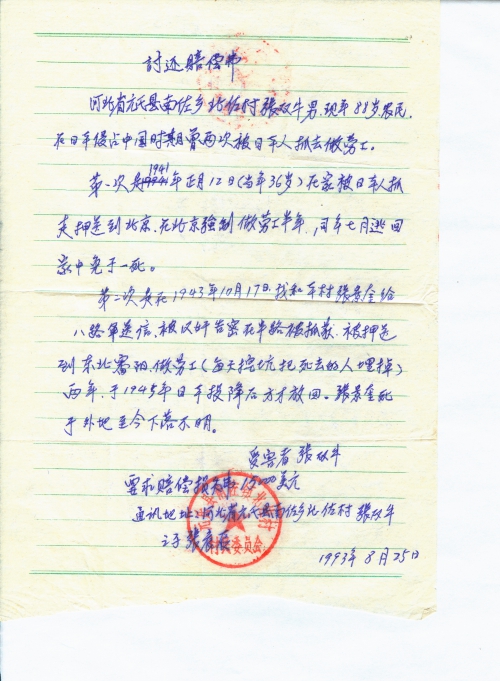 讨还赔偿书
河北省元氏县南佐乡北佐村张双牛男,现年88岁农民,
在日军侵占中国时期曾两次被日军人抓去做劳工。
第一次是1941年正月12日(当年36岁)在家被日军人抓
走押送到北京,在北京强制做劳工半年,同年七月逃回
家中免于一死。
第二次是在1943年10月17日,我和本村张春金给
八路军送信,被汉奸告密在半路被抓获,被押送
到东北沈阳,做劳工(每天挖坑把死去的人埋掉)
两年,于1945年日军投降后方才放回。张春金死
于外地至今下落不明。
受害者 张双牛
要求赔偿损失 美元
通讯地址:河北省元氏县南佐乡北佐村 张双牛
之子 张
委员会
1993年8月25日